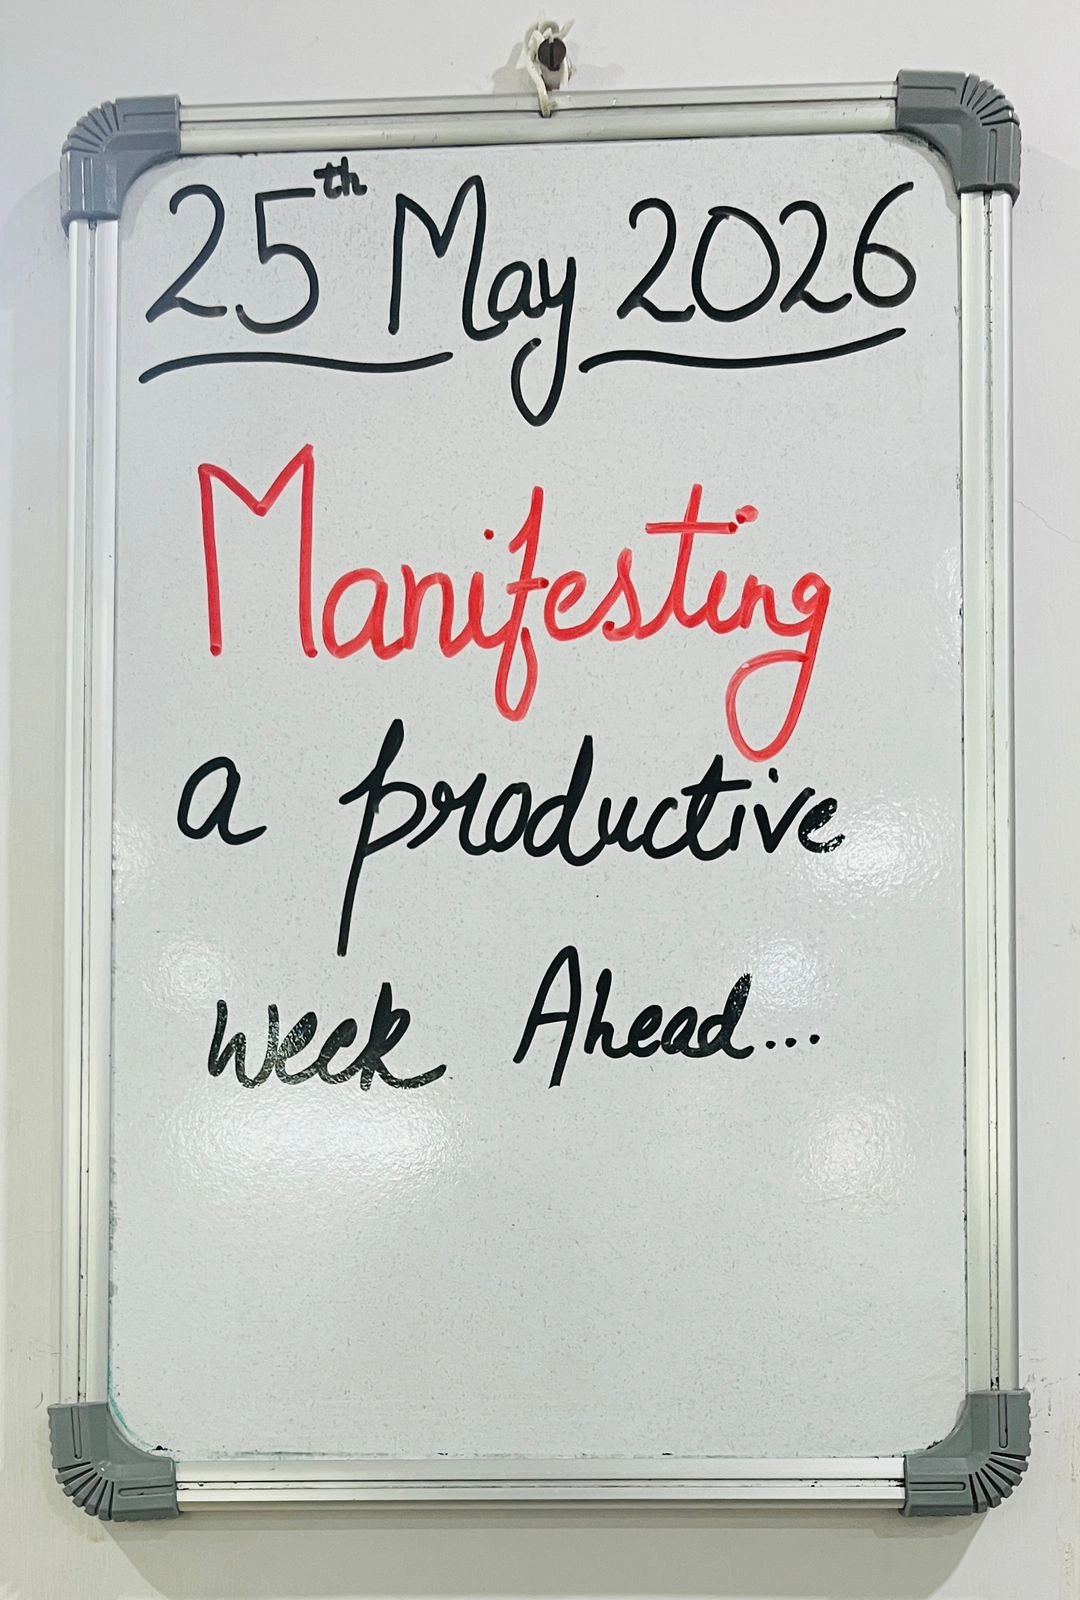 25th May 2026
Manifesting
a productive
week Ahead...